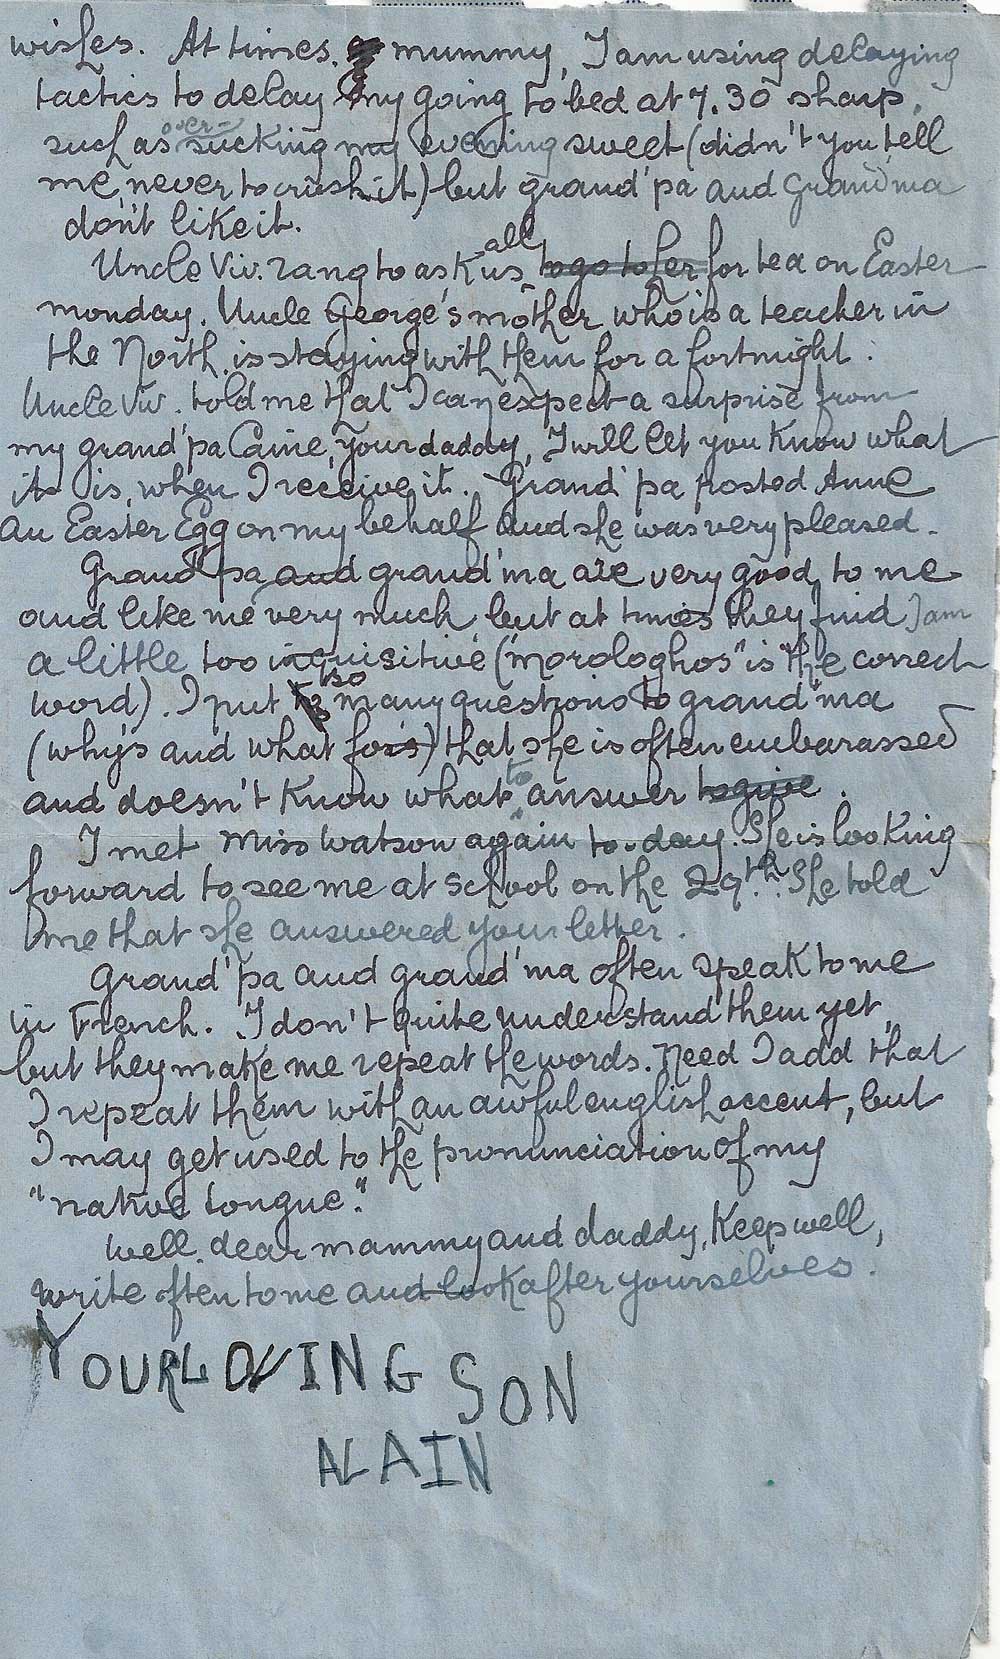 wishes. At times, mummy, I am using delaying
tactics to delay my going to bed at 7.30 sharp,
such as over-sucking my evening sweet (didn't you tell
me never to crush it) but grand'pa and Grand'ma
don't like it.
Uncle Viv. rang to ask us all to go to her for tea on Easter
monday. Uncle George's mother who is a teacher in
the North is staying with them for a fortnight.
Uncle Viv. told me that I can expect a surprise from
my grand'pa Caine, your daddy, I will let you know what
it is, when I receive it. Grand'pa posted Anne
an Easter Egg on my behalf and she was very pleased.
Grand'pa and grand'ma are very good to me
and like me very much but at times they find I am
a little too inquisitive ("morologhos" is the correct
word). I put so many questions to grand'ma
(why's and what for's) that she is often embarassed
and doesn't know what to answer to give.
I met Miss Watson again to-day. She is looking
forward to see me at school on the 29th. She told
me that she answered your letter.
Grand'pa and grand'ma often speak to me
in French. I don't quite understand them yet,
but they make me repeat the words. Need I add that
I repeat them with an awful english accent, but
I may get used to the pronunciation of my
"native tongue".
Well, dear mammy and daddy, Keep well,
write often to me and look after yourselves.
YOUR LOVING SON
ALAIN